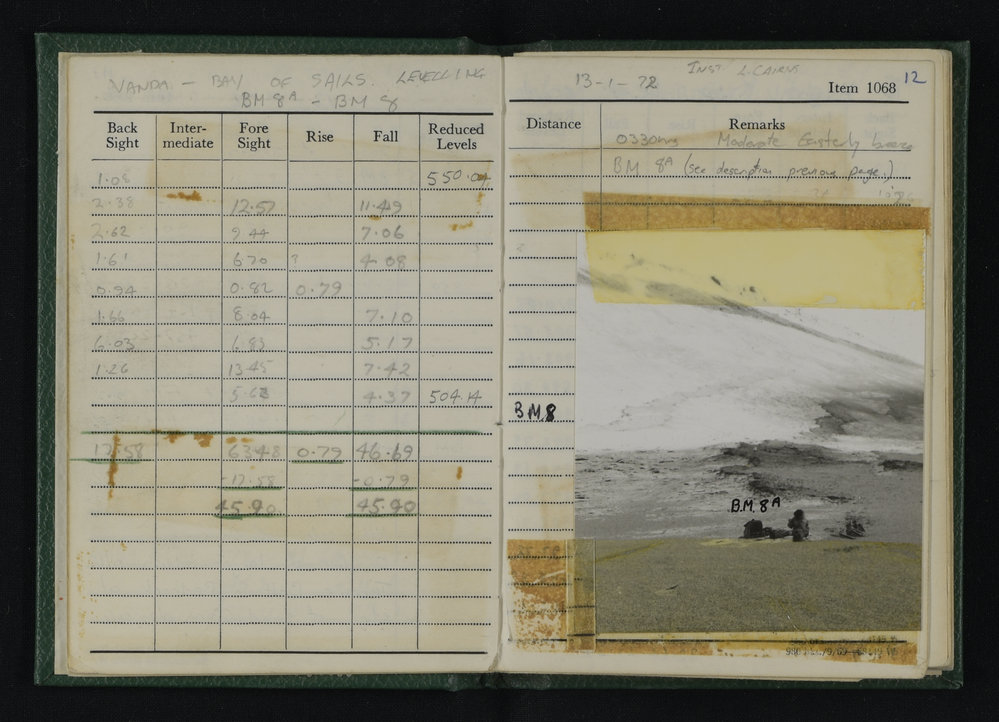 VANDA - BAY OF SAILS. LEVELLING
BM 8A - BM 8
Back Sight Inter-mediate Fore Sight Rise Fall Reduced Levels
1.08 550.04
2.38 12.57 11.49
2.62 9.44 7.06
1.61 6.70 4.08
0.94 0.82 0.79
1.66 8.04 7.10
6.03 6.83 5.17
1.26 13.45 7.42
5.63 4.37 504.14
17.58 63.48 0.79 46.69
-17.58 -0.79
45.90 45.90
INST L. CAIRNS
13-1-72 Item 1068 12
Distance Remarks
0330hrs Moderate Easterly breeze
BM 8A (see description previous page.)
BM8
B.M. 8A